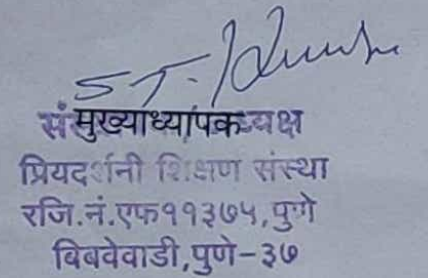 S.T.
संमुख्याध्यापकध्यक्ष
प्रियदर्शनी शिक्षण संस्था
रजि.नं.एफ११३७५,पुणे
बिबवेवाडी,पुणे-३७